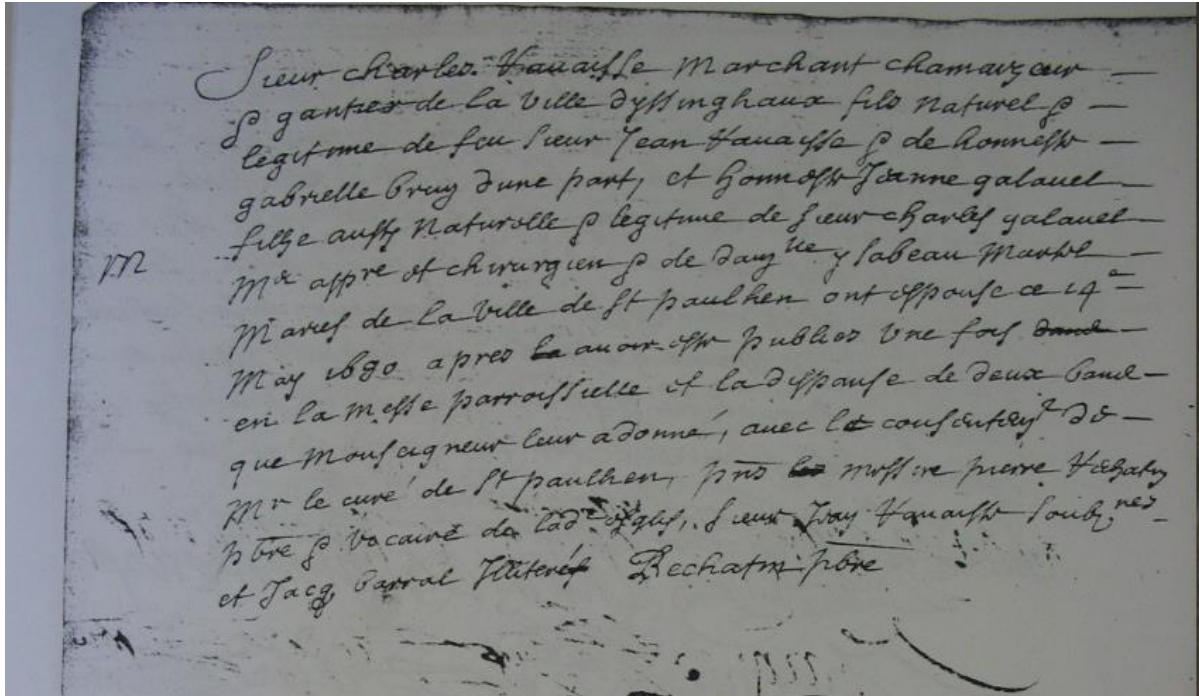 Sieur charles Vauaisse Marchant chamoizeur
& gantier de la Ville dyssinghaux fils Naturel &
legitime de feu Sieur Jean Vauaisse & de honneste
gabrielle bruy dune part, et honneste Jeanne galauel
fillye aussy Naturelle & legitime de Sieur charles galauel
M
Mre appre et chirurgien & de damlle ysabeau Martel
Maries de la Ville de St paulhen ont espouse ce 14e
May 1690 apres auoir este publies Vne fois
en la Messe parroissielle et la dispanse de deux banc
que Monseigneur leur a donné, auec le consentemt de
Mr le curé de St paulhen, pnts messire pierre
pbre & vocaire de lade esglis, Sieur Jean Vauaisse Soubznes
et Jacq barral Illiterés Bechatin pbre